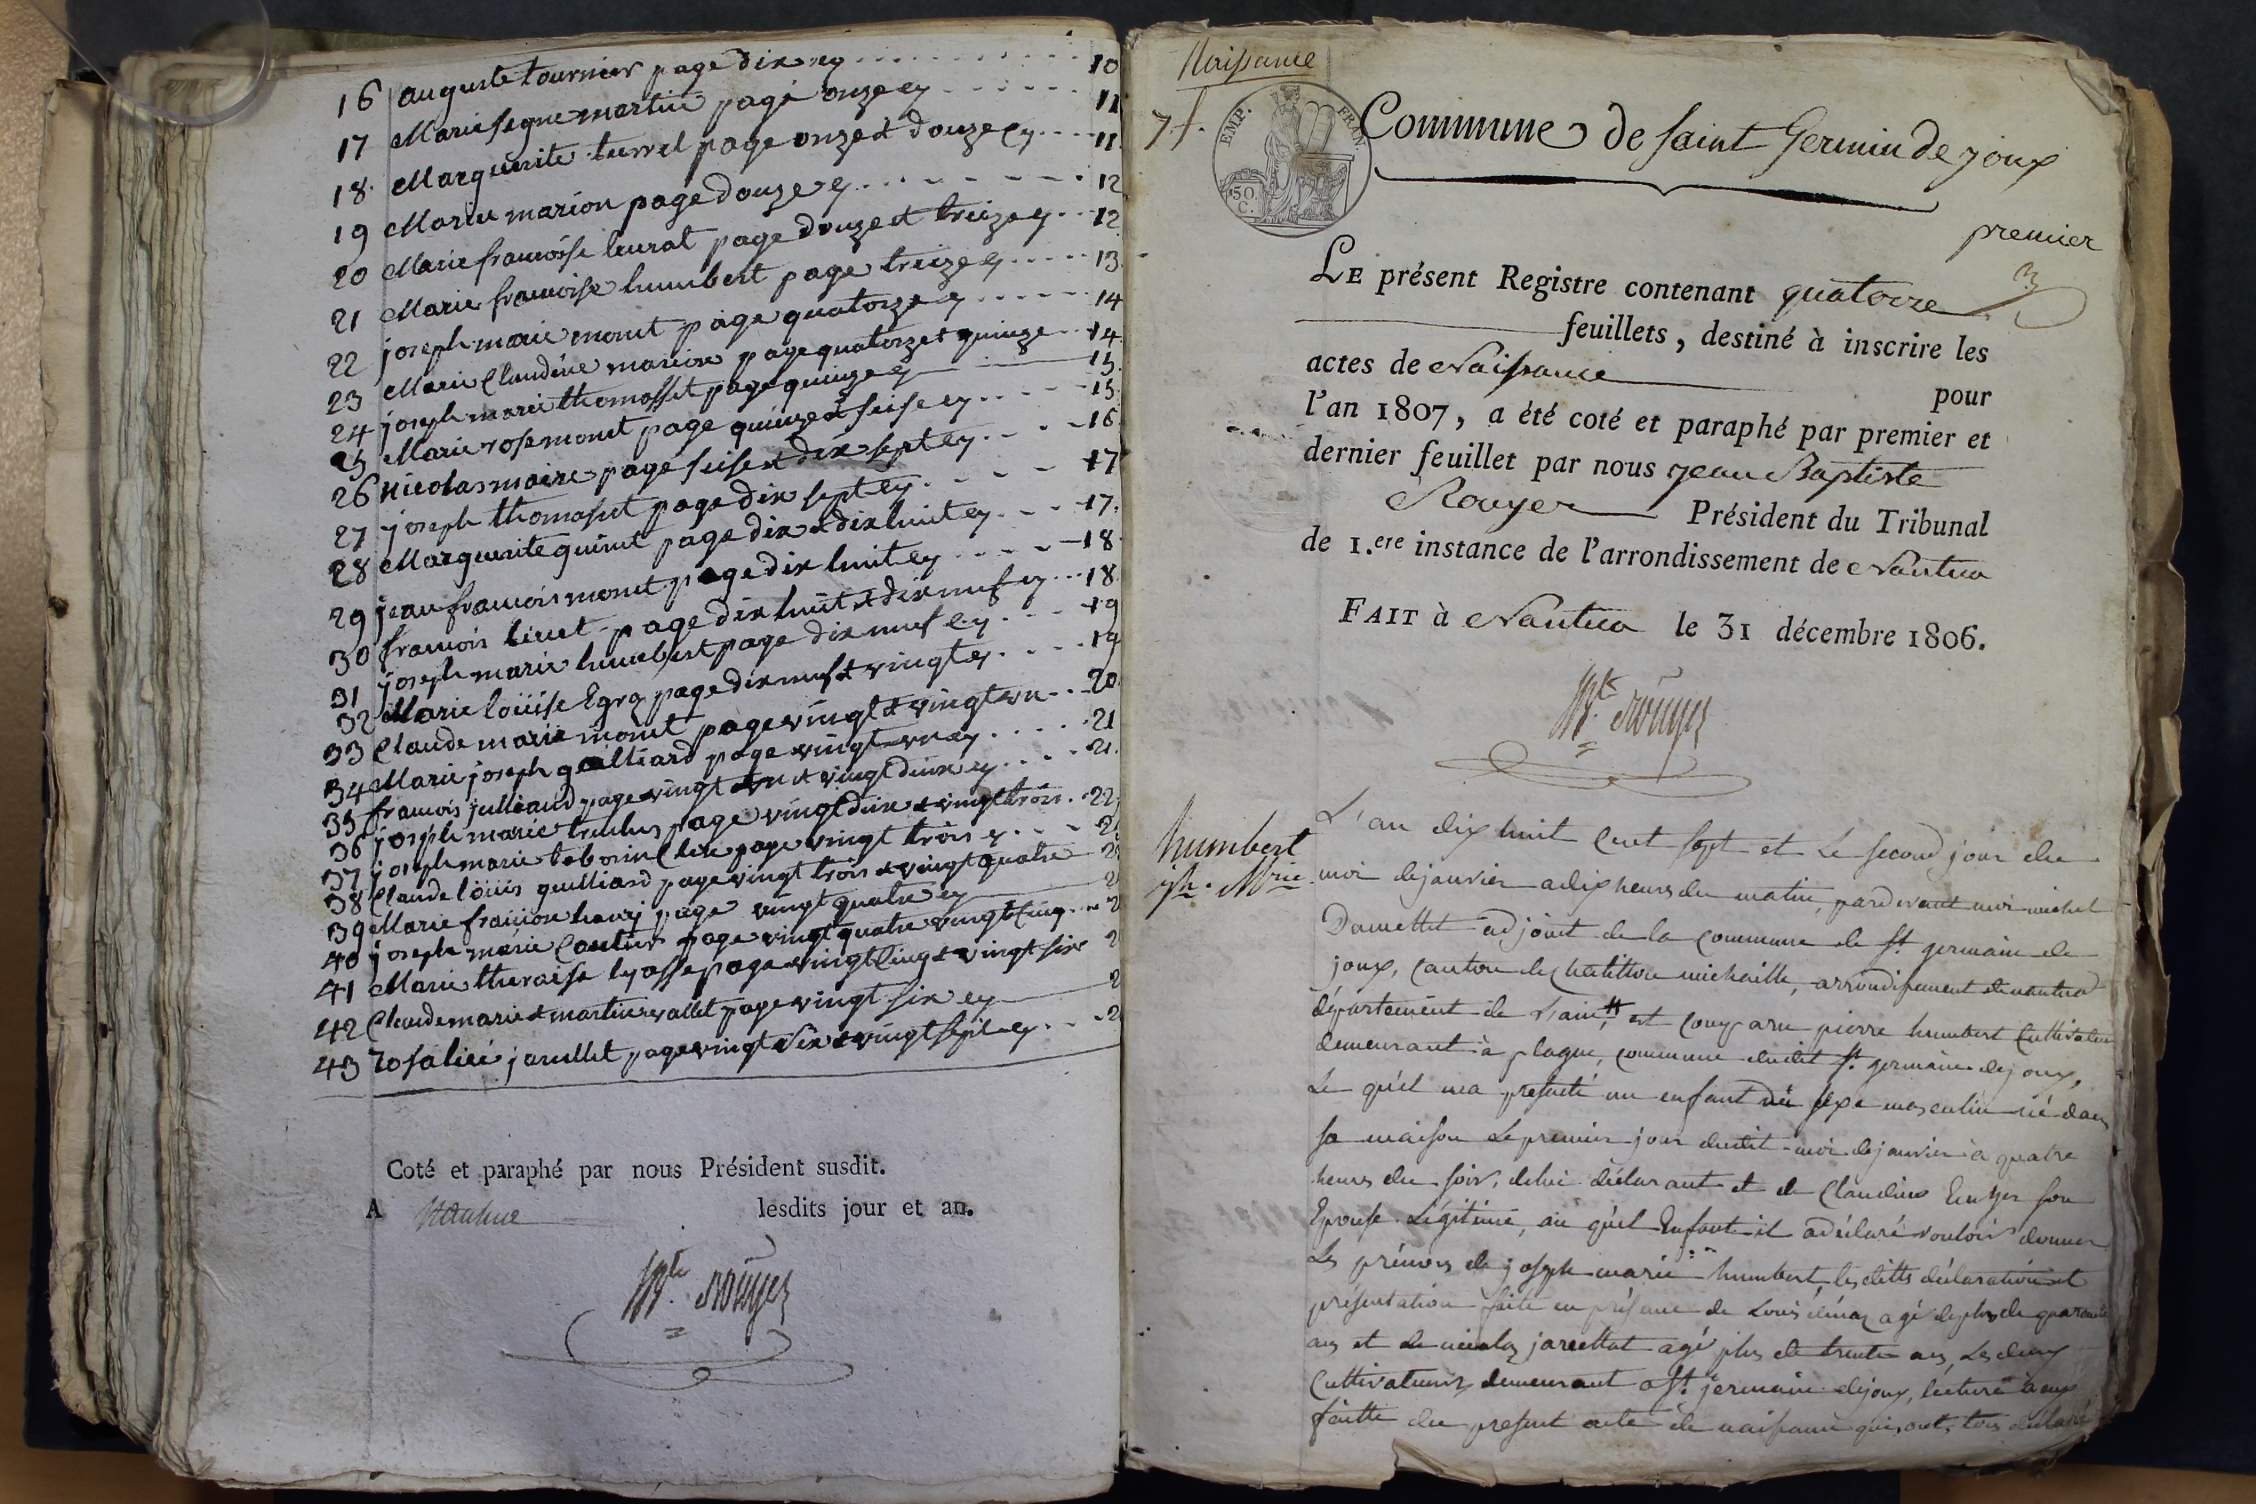 16 auguste tournier page dix ey 10
17 Marie segne martin page onze ey 11
18 Marguerite turrel page onze et douze ey 11
19 Marie marion page douze ey 12
20 Marie francoise leurat page douze et treize ey 12
21 Marie francoise humbert page treize ey 13
22 joseph marie monet page quatorze ey 14
23 Marie Claudine marion page quatorze et quinze 14
24 joseph marie thomasset page quinze ey 15
25 Marie rose monet page quinze et seise ey 15
26 nicolas maire page seise et dix sept ey 16
27 joseph thomasset page dix sept ey 17
28 Marguerite guinet page dix et dix huit ey 17
29 jean francois monet page dix huit ey 18
30 francois livet page dix huit et dix neuf ey 18
31 joseph marie humbert page dix neuf ey 19
32 Marie loüise Egra page dix neuf et vingt ey 19
33 Claude marie monet page vingt et vingt un 20
34 Marie joseph gailliard page vingt un ey 21
35 francois julliand page vingt un et vingt deux ey 21
36 joseph marie page vingt deux et vingt trois 22
37 joseph marie page vingt trois ey
38 Claude loüis guilliard page vingt trois et vingt quatre
39 Marie francoise henrij page vingt quatre ey
40 joseph marie page vingt quatre vingt cinq
41 Marie theraise lyasse page vingt cinq et vingt six
42 Claude marie et martine vallet page vingt six ey
43 rosaliee jarullet page vingt six et vingt sept ey
Coté et paraphé par nous Président susdit.
A Nantua lesdits jour et an.
Bte. Rouyer
Naissance
7f.
EMP. FRAN.
50 C.
Commune de saint Germin de joux
premier
LE présent Registre contenant quatorze
feuillets, destiné à inscrire les
actes de Naissance pour
l'an 1807, a été coté et paraphé par premier et
dernier feuillet par nous jean Baptiste
Rouyer Président du Tribunal
de 1.ere instance de l'arrondissement de Nantua
FAIT à Nantua le 31 décembre 1806.
Bte. Rouyer
humbert
jh. Mrie
L'an dix huit cent sept et le second jour du
moi de janvier a dix heures du matin, pardevant moi michel
Damettet adjoint de la commune de st. germain de
joux, canton de chatillon michaille, arrondissement de nantua
département de l'ain, est comparu pierre humbert Cultivateur
demeurant à plagne, commune dudit st. germain de joux,
Le quel ma presenté un enfant du sexe masculin né dans
sa maison le premier jour dudit moi de janvier à quatre
heures du soir, de lui déclarant et de Claudine son
Epouse Légitime, au quel Enfant il a déclaré vouloir donner
Les prénoms de joseph marie humbert, les dittes déclaration et
présentation faite en présence de Louis agé de plus de quarante
ans et de nicolas jarcettat agé plus de trente ans, Les deux
Cultivateurs demeurant a st. germain de joux, lecture a eux
faitte du present acte de naissance qui, ont, tous déclaré